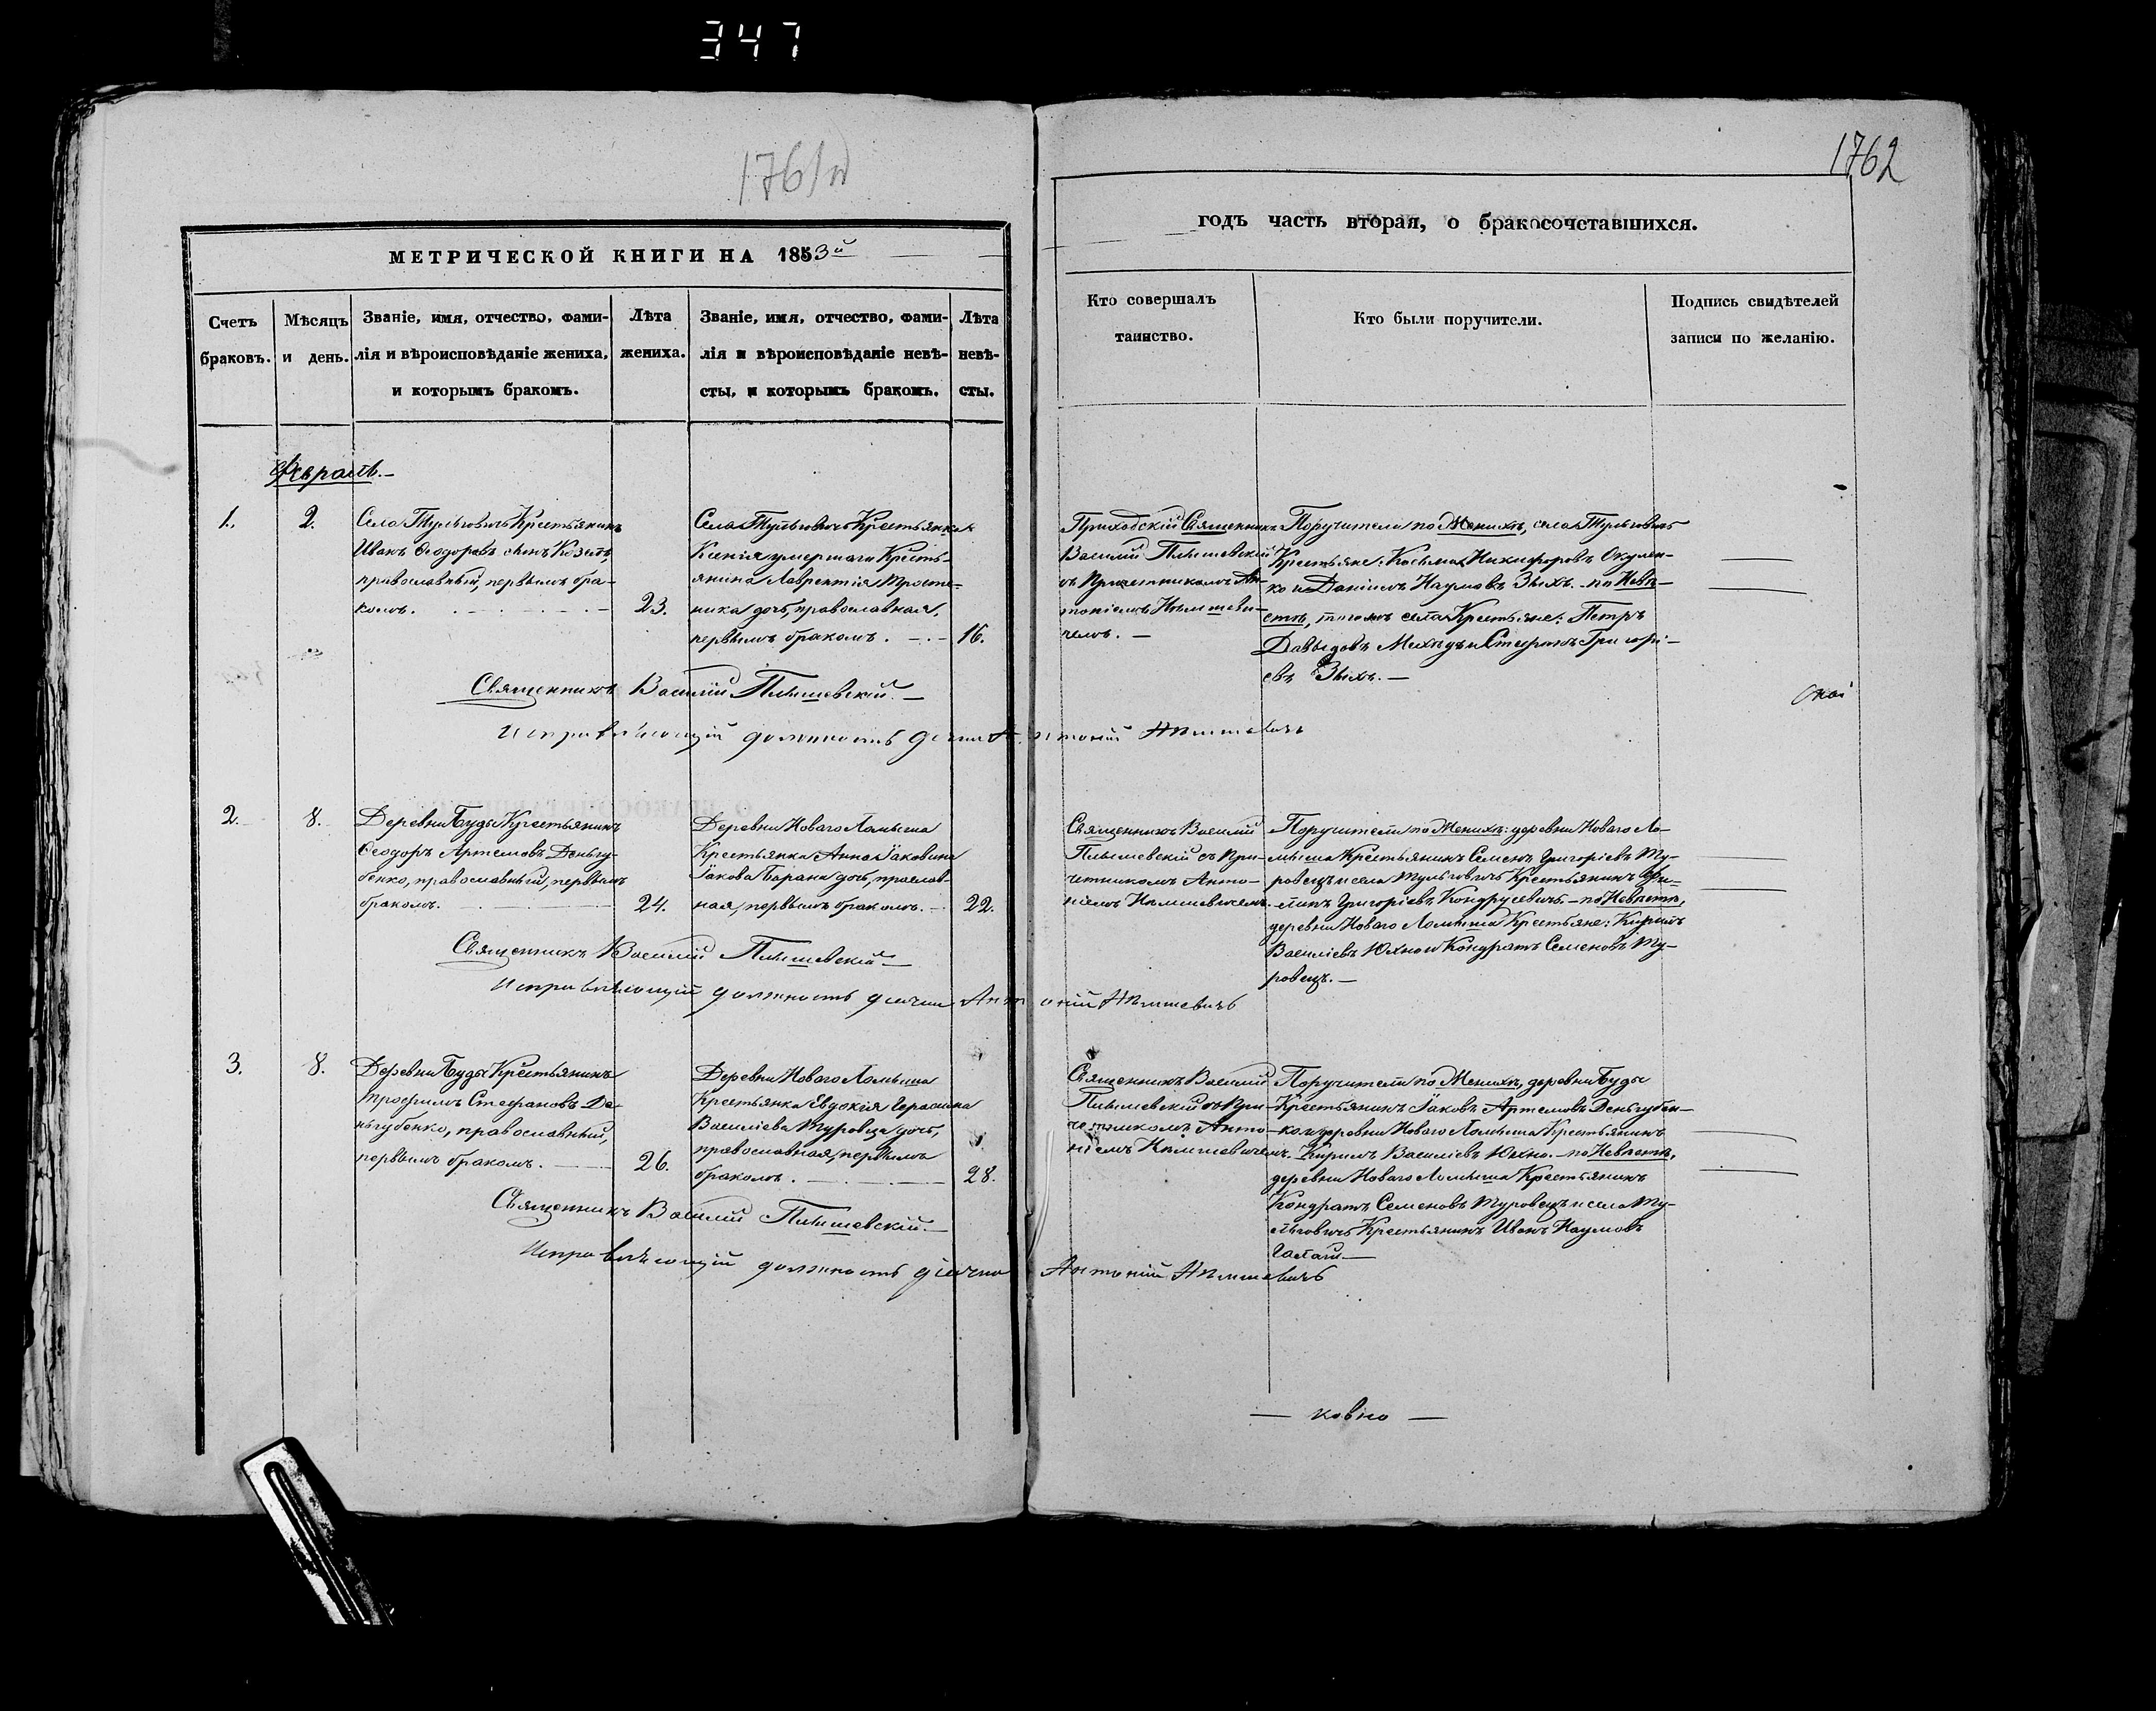 347
1761
1762
МЕТРИЧЕСКОЙ КНИГИ НА 1853й
годъ часть вторая, о бракосочетавшихся.
Счетъ
браковъ.
Мѣсяцъ
и день.
Званіе, имя, отчество, фами-
лія и вѣроисповѣданіе жениха,
и которымъ бракомъ.
Лѣта
жениха.
Званіе, имя, отчество, фами-
лія и вѣроисповѣданіе невѣ-
сты, и которымъ бракомъ.
Лѣта
невѣ-
сты.
Кто совершалъ
таинство.
Кто были поручители.
Подпись свидѣтелей
записи по желанію.
Февраль.
1.
2.
Села Тульговичъ Крестьянинъ
Иванъ Ѳеодоровъ сынъ Козелъ,
православный, первымъ бра-
комъ.
23.
Села Тульговичъ Крестьянка
Ксенія умершаго Кресть-
янина Лаврентія
ника дочь, православная,
первымъ бракомъ.
16.
Приходскій Священникъ
Василій Плышевскій
съ Причетникомъ Ан-
тоніемъ Нѣмшеви-
чемъ.
Поручители по Женихѣ, села Тульговичъ
Крестьяне: Косьма Никифоровъ Окулен-
ко и Даніилъ Наумовъ Зыхъ. по Невѣ-
стѣ, тогожъ села Крестьяне: Петръ
Давыдовъ и Стефанъ Григорі-
евъ Зыхъ.
Священникъ Василій Плышевскій.
Исправляющій должность дьячка Антоній Нѣмшевичъ
2.
8.
Деревни Буды Крестьянинъ
Ѳеодоръ Артемовъ Деньгу-
бенко, православный, первымъ
бракомъ.
24.
Деревни Новаго Ломыша
Крестьянка Анна Іаковина
Іакова Барана дочь, праслав-
ная, первымъ бракомъ.
22.
Священникъ Василій
Плышевскій съ При-
четникомъ Анто-
ніемъ Нѣмшевичемъ.
Поручители по Женихѣ: деревни Новаго Ло-
мыша Крестьянинъ Семенъ Григоріевъ Ту-
ровецъ и села Тульговичъ Крестьянинъ Фи-
липъ Григоріевъ Кондрусевичъ. по Невѣстѣ,
деревни Новаго Ломыша Крестьяне: Кирилъ
Василіевъ Юхно и Кондратъ Семеновъ Ту-
ровецъ.
Священникъ Василій Плышевскій
Исправляющій должность дьячка Антоній Нѣмшевичъ
3.
8.
Деревни Буды Крестьянинъ
Трофимъ Стефановъ Де-
ньгубенко, православный,
первымъ бракомъ.
26.
Деревни Новаго Ломыша
Крестьянка Евдокія Герасима
Василіева Туровца дочь,
православная, первымъ
бракомъ.
28.
Священникъ Василій
Плышевскій съ При-
четникомъ Анто-
ніемъ Нѣмшевичемъ.
Поручители по Женихѣ, деревни Буды
Крестьянинъ Іаковъ Артемовъ Деньгубен-
ко и деревни Новаго Ломыша Крестьянинъ
Кирилъ Василіевъ Юхно. по Невѣстѣ,
деревни Новаго Ломыша Крестьянинъ
Кондратъ Семеновъ Туровецъ и села Ту-
льговичъ Крестьянинъ Иванъ Наумовъ
Священникъ Василій Плышевскій.
Исправляющій должность дьячка Антоній Нѣмшевичъ